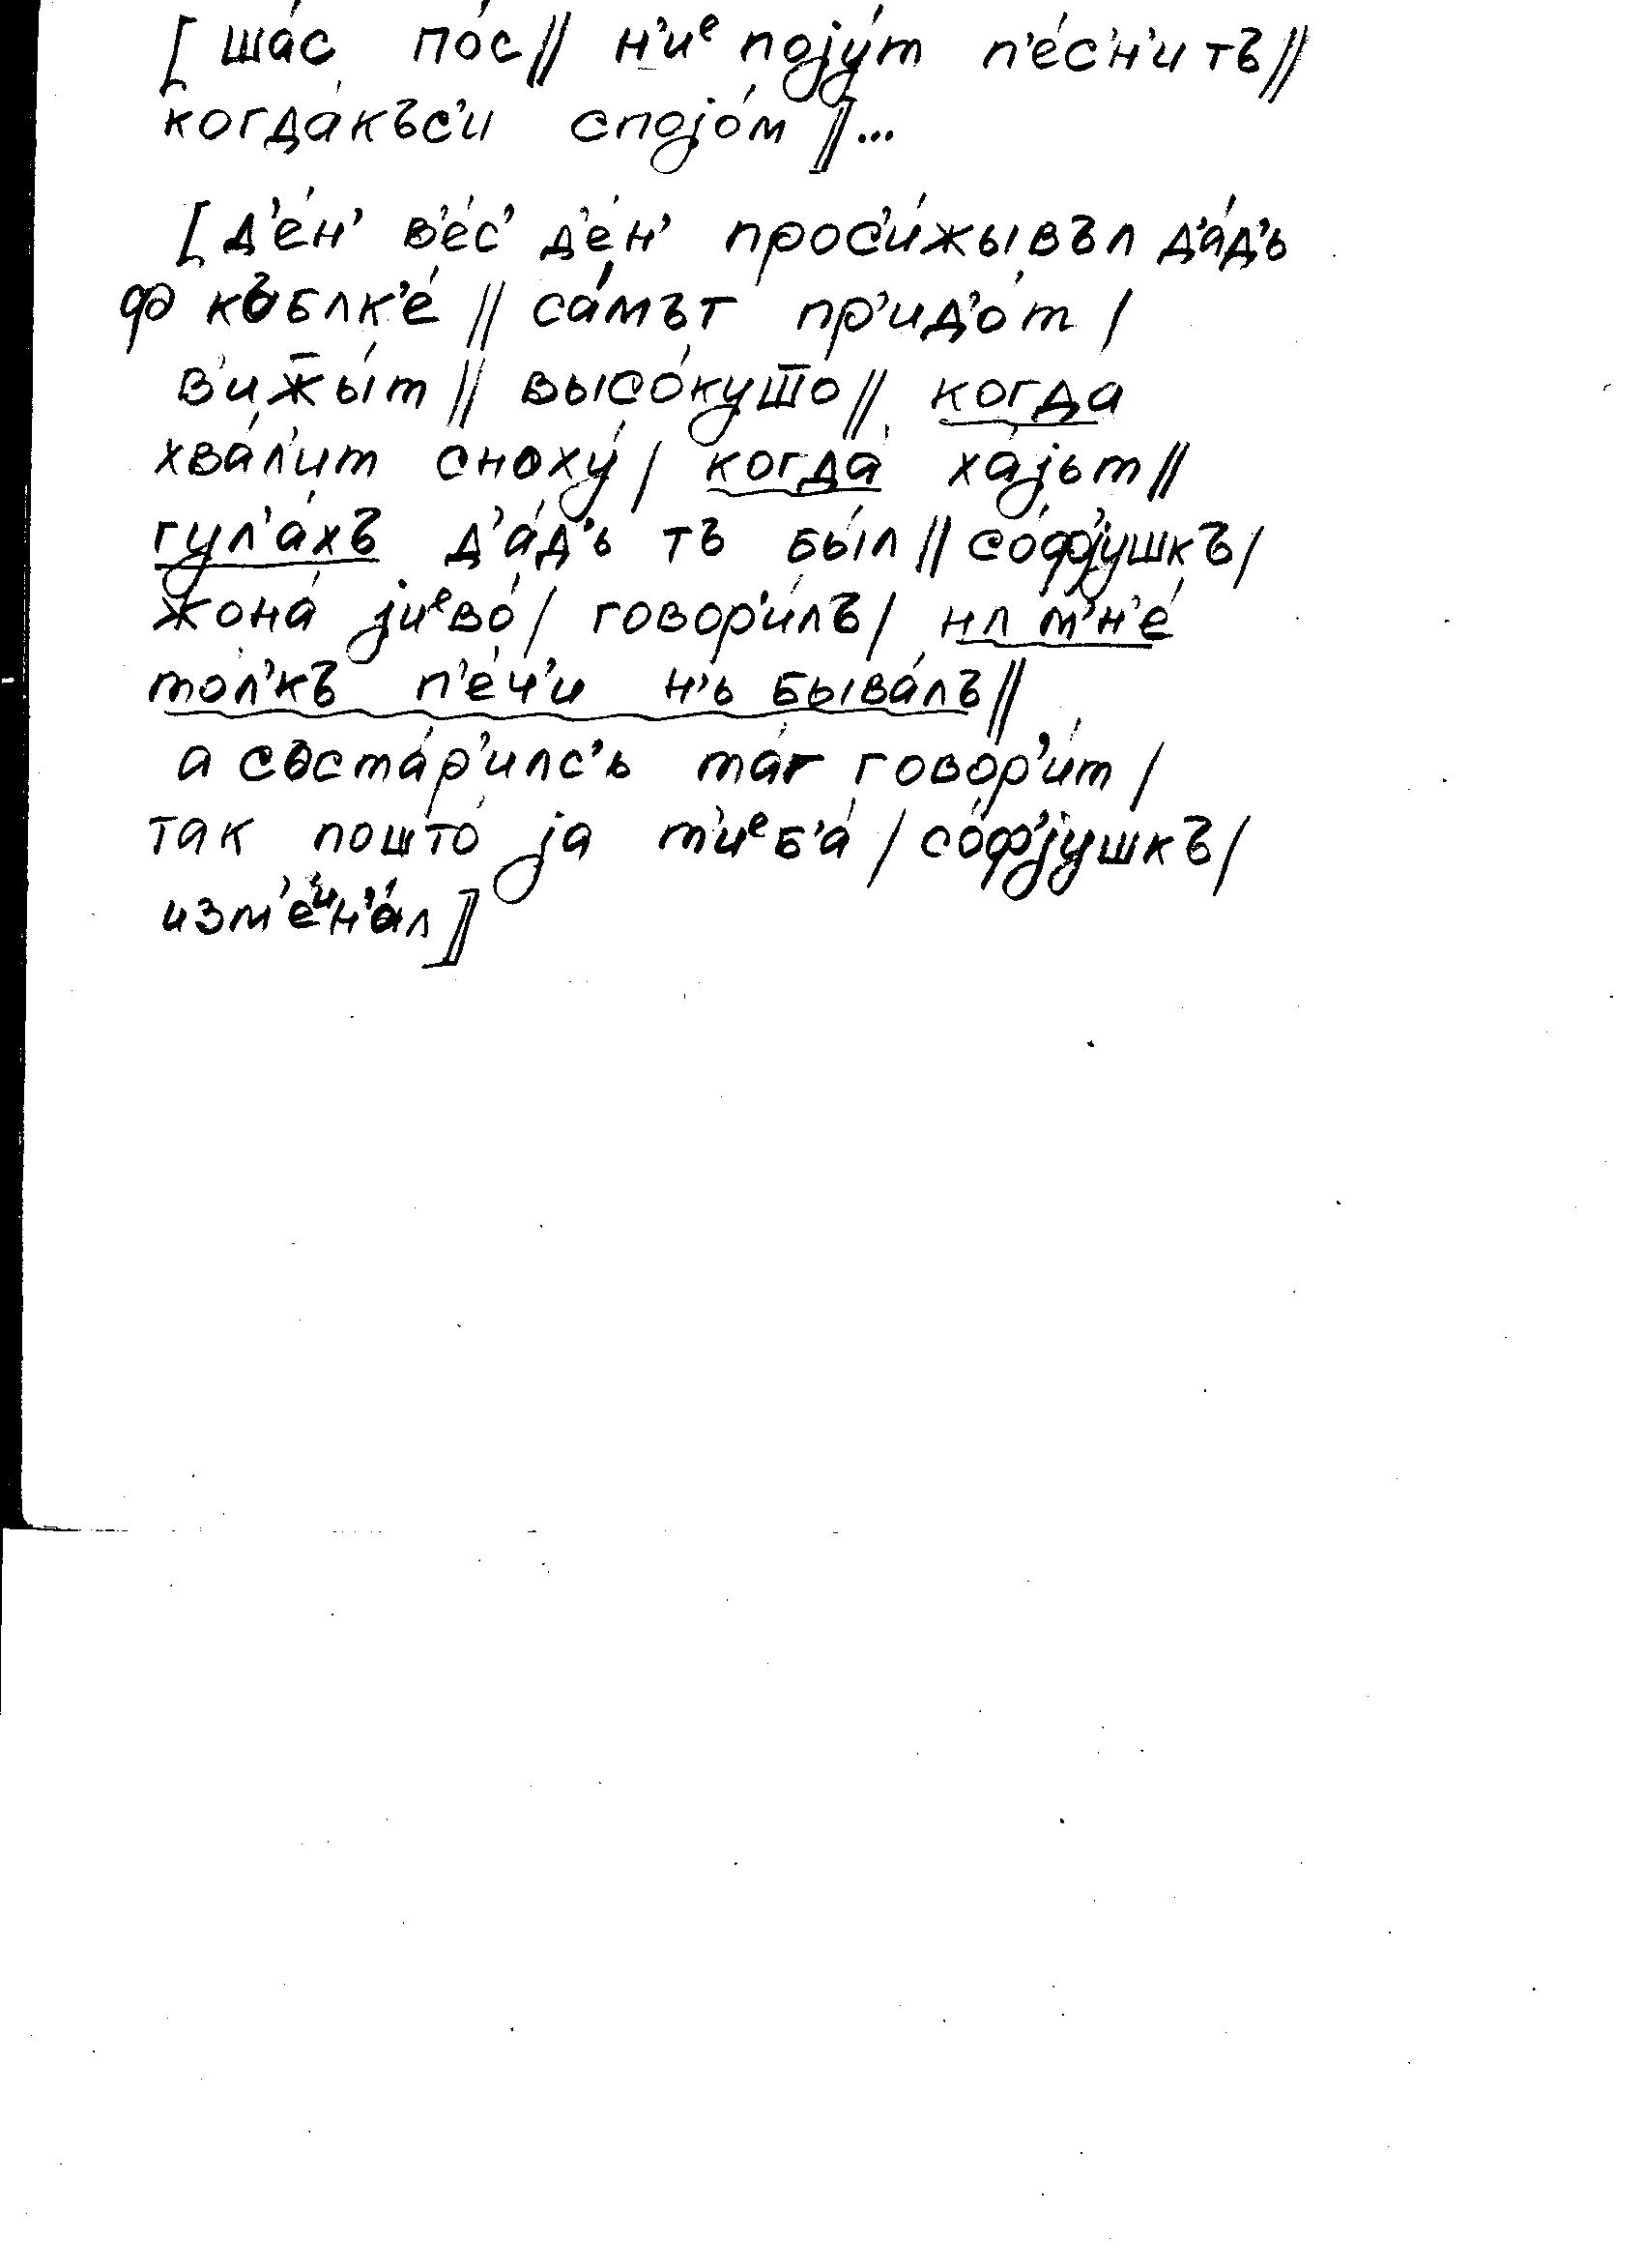 [ша́с по́с// н'иᵉ пojу́т п'е́с'н'и тъ//
когда́къс'и спojо́м]//...
[д'е́н' в'е́с' д'е́н' прос'и́жывъл д'а́д'ь
ф къблк'е́// са́мът пр'ид'о́т/
в'иж̅ы́т// высо́куш̅о// когда
хва́л'ит сноху́/ когда́ ха́jьт//
гул'а́хъ д'а́д'ь тъ бы́л// со́ф'jушкъ/
жона́ jиᵉво́/ говор'и́лъ/ нл м'н'е́
то́л'къ п'е́ч'и н'ь быва́лъ//
а съста́р'илс'ь та́г говор'и́т/
так пошто́ ja т'иᵉб'а́/ со́ф'jушкъ/
изм'еⁱн'а́л]//